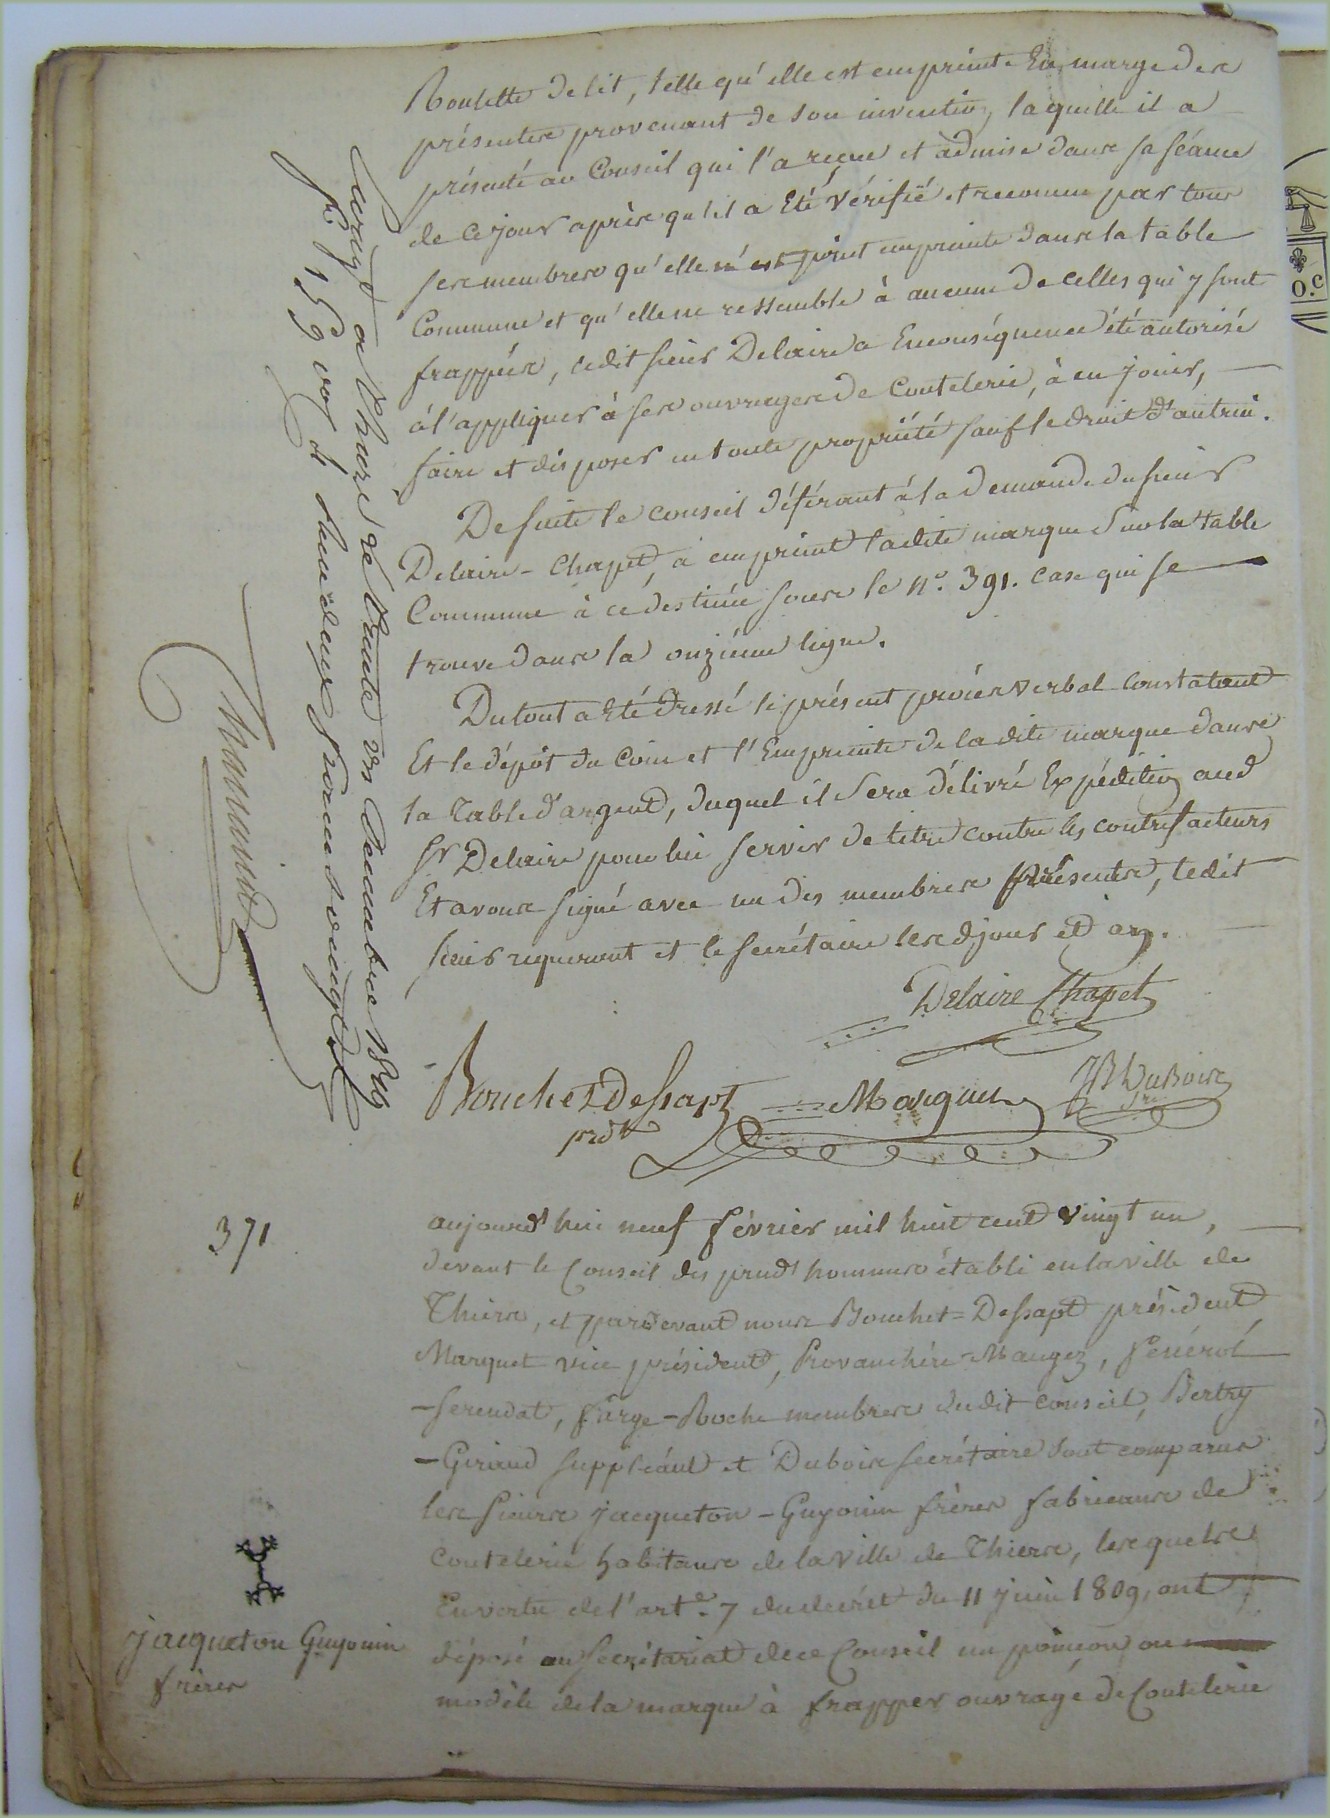 Roulette de lit, telle qu'elle est empreinte En marge des
présentes provenant de son invention, laquelle il a
présenté au Conseil qui l'a reçue et admise dans sa séance
de ce jour après qu'il a Eté vérifié et reconnu par tous
ses membres qu'elle n'est point empreinte dans la table
Commune et qu'elle ne ressemble à aucune de celles qui y sont
frappées, ledit sieur Delaire a Enconséquence été autorisé
à l'appliquer à ses ouvrages de Coutelerie, à en jouir,
faire et disposer en toute propriété sauf le droit d'autrui.
De suite le conseil déférant à la demande du sieur
Delaire-Chapet, a empreint ladite marque sur la table
Commune à ce destinée sous le n°. 391. case qui se
trouve dans la onzième ligne.
Du tout a Eté dressé le présent procès verbal constatant
Et le dépôt du Coin et l'Empreinte de la dite marque dans
la Table d'argent, duquel il sera délivré Expédition aud
Sr Delaire pour lui servir de titre contre les contrefacteurs
Et avons signé avec un des membres présents, ledit
sieur requerant et le secrétaire lesd jour et an.
Delaire Chapet
Bouchet Dessapt
prdt
Marquet
JB Dubois
Sre
Enregé a Thiers le trente un Decembre 1821
fo. 159 vo
Chamaind
371
aujourd'hui neuf février mil huit cent vingt un,
devant le Conseil des prud'hommes établi en la ville de
Thiers, et pardevant nous Bouchet=Dessapt président,
Marquet vice président, Provenchère-Maugez, Fénérol
-Serendat, Farge-Roche membres dudit conseil, Bertry
-Giraud suppléant et Dubois secrétaire sont comparus
les sieurs jacqueton-Guyonin frères fabricans de
Coutelerie habitans de la ville de Thiers, lesquels
En vertu de l'arte. 7 du décret du 11 juin 1809, ont
déposé au secrétariat de ce Conseil un poinçon ou
modèle de la marque à frapper ouvrage de Coutelerie
jacqueton Guyonin
frères
o.c